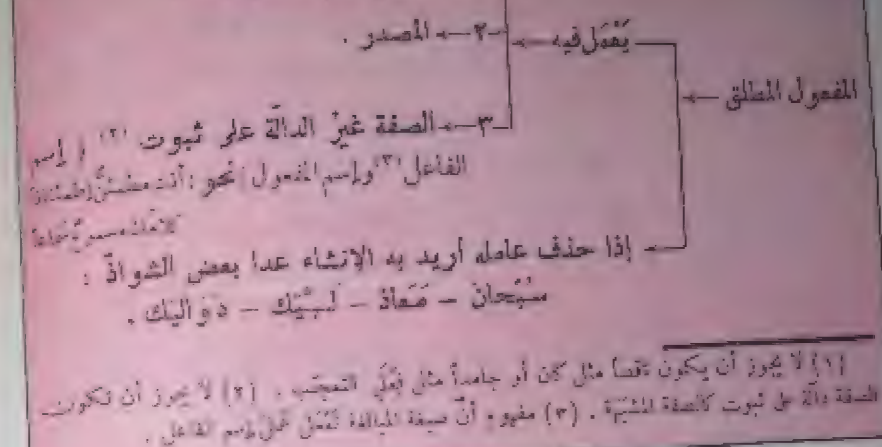 ٢ — المصدر .
يَعْمَل فيه
المفعول المطلق
٣ — الصفة غيرُ الدالّة على ثبوت (٢) ( إسم
الفاعل (٣) وإسم المفعول ) نحو : أنت مطمئنٌّ إطمئناناً
إذا حذف عامله أريد به الإنشاء عدا بعض الشواذّ :
سُبْحانَ – مَعَاذَ – لَبَّيْك – دَوَالَيك .
(١) لا يجوز أن يكون ناقصاً مثل كان أو جامداً مثل فِعْلَي التعجّب . (٢) لا يجوز أن تكون
الصفة دالّة على ثبوت كالصفة المشبّهة . (٣) مفهوم أنّ صيغة المبالغة تَعْمَل عَمَلَ إسم الفاعل .